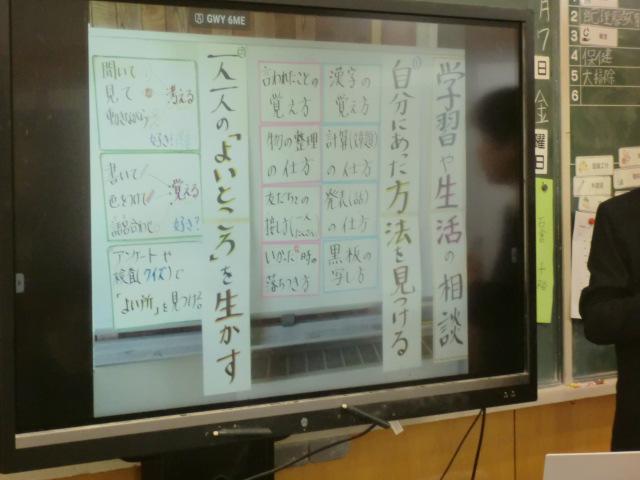 GWY 6ME
学習や生活の相談
自分にあった方法を見つける
漢字の
覚え方
計算(文章題)
の仕方
発表(話)
の仕方
黒板の
写し方
言われたことの
覚え方
物の整理
の仕方
友だちとの
接し方
いかった時の
落ちつき方
一人一人の「よいところ」を生かす
聞いて
見て
考える
動きながら
好き?
書いて
色をつけて
覚える
語呂合わせ
好き?
アンケートや
検査(クイズ)で
「よい所」を見つける
月
7
日
金
曜
日
2
3
4 保健
5 大掃除
6